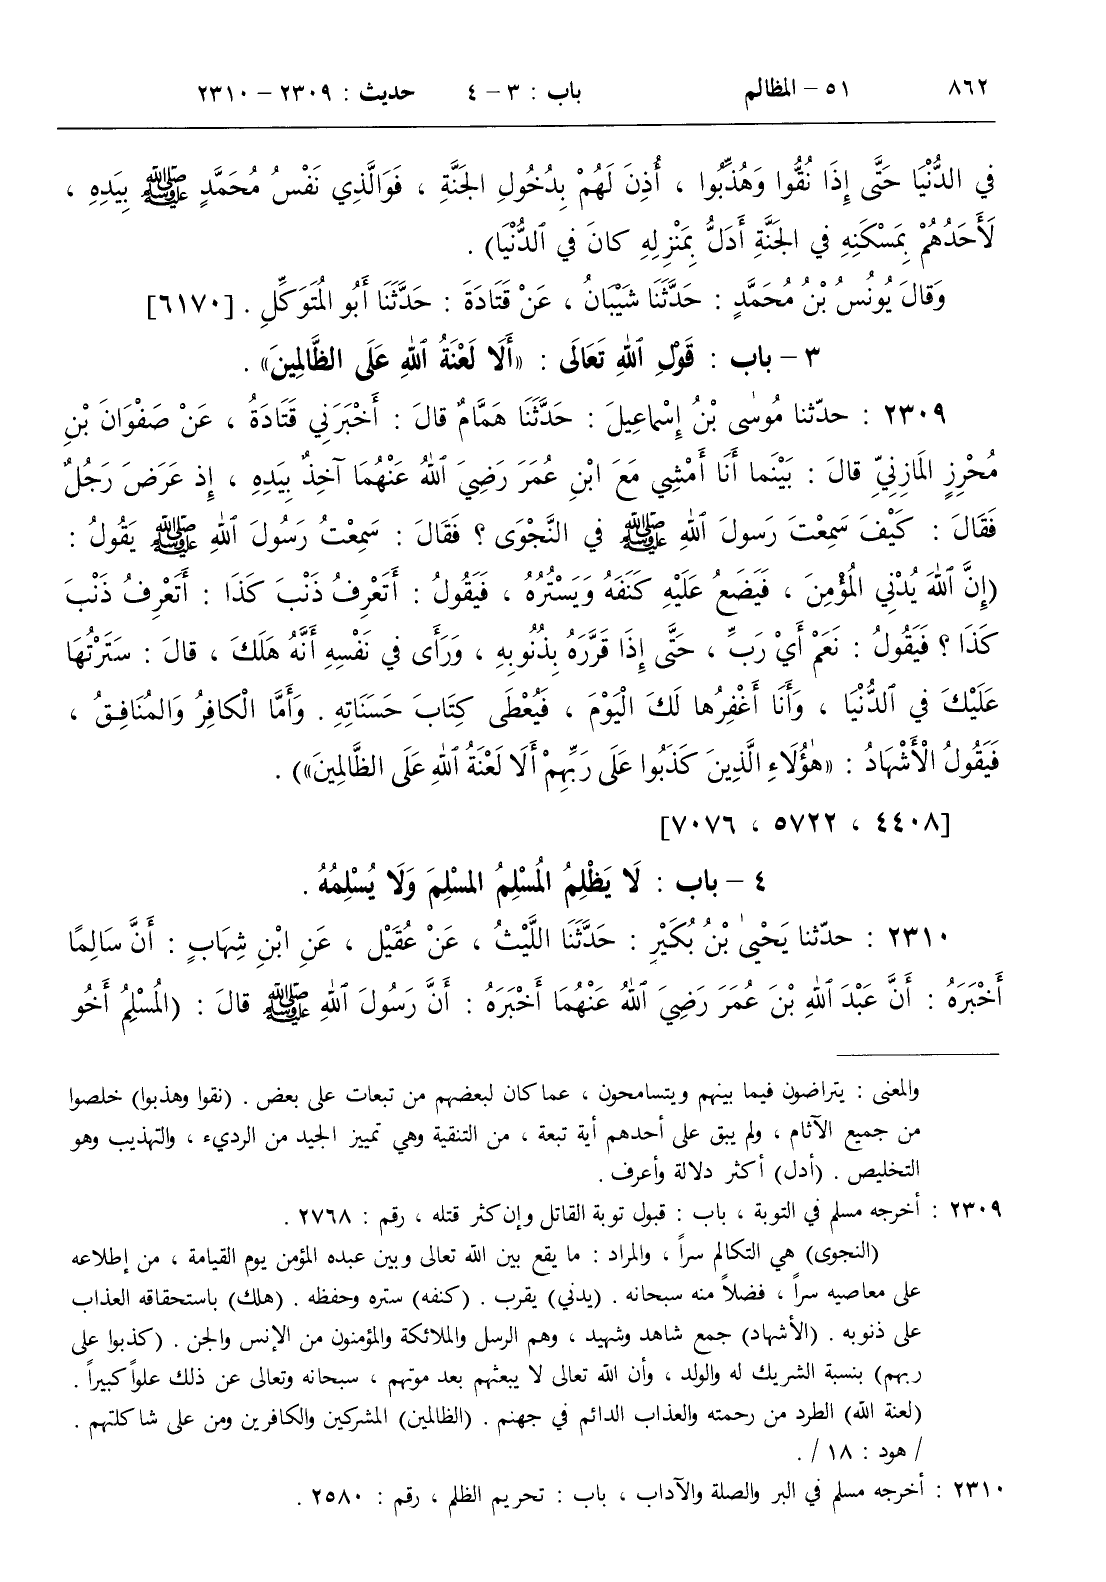 ٨٦٢ ٥١ – المظالم باب : ٣ – ٤ حديث : ٢٣٠٩ – ٢٣١٠
في الدُّنْيَا حَتَّى إِذَا نُقُّوا وَهُذِّبُوا ، أُذِنَ لَهُمْ بِدُخُولِ الجَنَّةِ ، فَوَالَّذِي نَفْسُ مُحَمَّدٍ ﷺ بِيَدِهِ ،
لَأَحَدُهُمْ بِمَسْكَنِهِ في الجَنَّةِ أَدَلُّ بِمَنْزِلِهِ كانَ في ٱلدُّنْيَا) .
وَقالَ يُونُسُ بْنُ مُحَمَّدٍ : حَدَّثَنَا شَيْبَانُ ، عَنْ قَتَادَةَ : حَدَّثَنَا أَبُو المُتَوَكِّلِ . [٦١٧٠]
٣ – باب : قَوْلِ ٱللهِ تَعَالَى : «أَلَا لَعْنَةُ ٱللهِ عَلَى الظَّالِمِينَ» .
٢٣٠٩ : حدّثنا مُوسٰى بْنُ إِسْماعِيلَ : حَدَّثَنَا هَمَّامٌ قالَ : أَخْبَرَنِي قَتَادَةُ ، عَنْ صَفْوَانَ بْنِ
مُحْرِزٍ المَازِنِيِّ قالَ : بَيْنَما أَنَا أَمْشِي مَعَ ابْنِ عُمَرَ رَضِيَ ٱللهُ عَنْهُمَا آخِذٌ بِيَدِهِ ، إِذ عَرَضَ رَجُلٌ
فَقَالَ : كَيْفَ سَمِعْتَ رَسولَ ٱللهِ ﷺ في النَّجْوَى ؟ فَقَالَ : سَمِعْتُ رَسُولَ ٱللهِ ﷺ يَقُولُ :
(إِنَّ ٱللهَ يُدْنِي المُؤْمِنَ ، فَيَضَعُ عَلَيْهِ كَنَفَهُ وَيَسْتُرُهُ ، فَيَقُولُ : أَتَعْرِفُ ذَنْبَ كَذَا : أَتَعْرِفُ ذَنْبَ
كَذَا ؟ فَيَقُولُ : نَعَمْ أَيْ رَبِّ ، حَتَّى إِذَا قَرَّرَهُ بِذُنُوبِهِ ، وَرَأَى في نَفْسِهِ أَنَّهُ هَلَكَ ، قالَ : سَتَرْتُهَا
عَلَيْكَ في ٱلدُّنْيَا ، وَأَنَا أَغْفِرُها لَكَ الْيَوْمَ ، فَيُعْطَى كِتَابَ حَسَنَاتِهِ . وَأَمَّا الْكافِرُ وَالمُنَافِقُ ،
فَيَقُولُ الْأَشْهَادُ : «هٰؤُلَاءِ الَّذِينَ كَذَبُوا عَلَى رَبِّهِمْ أَلَا لَعْنَةُ ٱللهِ عَلَى الظَّالِمِينَ») .
[٤٤٠٨ ، ٥٧٢٢ ، ٧٠٧٦]
٤ – باب : لَا يَظْلِمُ المُسْلِمُ المسْلِمَ وَلَا يُسْلِمُهُ .
٢٣١٠ : حدّثنا يَحْيىٰ بْنُ بُكَيْرٍ : حَدَّثَنَا اللَّيْثُ ، عَنْ عُقَيْل ، عَنِ ابْنِ شِهَابٍ : أَنَّ سَالِمًا
أَخْبَرَهُ : أَنَّ عَبْدَ ٱللهِ بْنَ عُمَرَ رَضِيَ ٱللهُ عَنْهُمَا أَخْبَرَهُ : أَنَّ رَسُولَ ٱللهِ ﷺ قالَ : (المُسْلِمُ أَخُو
والمعنى : يتراضون فيما بينهم ويتسامحون ، عما كان لبعضهم من تبعات على بعض . (نقوا وهذبوا) خلصوا
من جميع الآثام ، ولم يبق على أحدهم أية تبعة ، من التنقية وهي تمييز الجيد من الرديء ، والتهذيب وهو
التخليص . (أدل) أكثر دلالة وأعرف .
٢٣٠٩ : أخرجه مسلم في التوبة ، باب : قبول توبة القاتل وإن كثر قتله ، رقم : ٢٧٦٨ .
(النجوى) هي التكالم سراً ، والمراد : ما يقع بين الله تعالى وبين عبده المؤمن يوم القيامة ، من إطلاعه
على معاصيه سراً ، فضلاً منه سبحانه . (يدني) يقرب . (كنفه) ستره وحفظه . (هلك) باستحقاقه العذاب
على ذنوبه . (الأشهاد) جمع شاهد وشهيد ، وهم الرسل والملائكة والمؤمنون من الإنس والجن . (كذبوا على
ربهم) بنسبة الشريك له والولد ، وأن الله تعالى لا يبعثهم بعد موتهم ، سبحانه وتعالى عن ذلك علواً كبيراً .
(لعنة الله) الطرد من رحمته والعذاب الدائم في جهنم . (الظالمين) المشركين والكافرين ومن على شاكلتهم .
/ هود : ١٨ / .
٢٣١٠ : أخرجه مسلم في البر والصلة والآداب ، باب : تحريم الظلم ، رقم : ٢٥٨٠ .